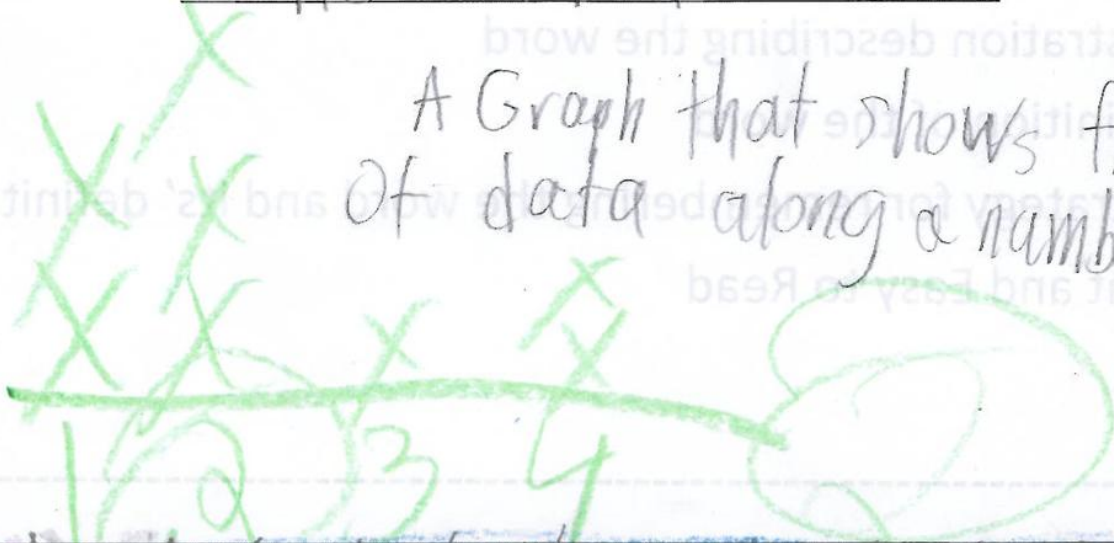 A Graph that shows f
of data along a numb
X
X X
X X X X X
1 2 3 4